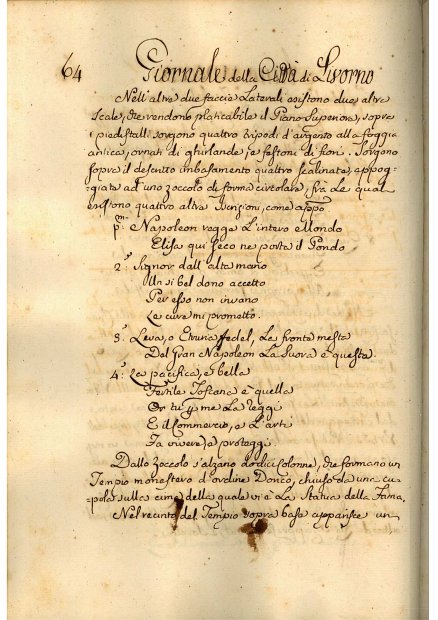 64 Giornale della Città di Livorno
Nell'altre due faccie Laterali esistono due altre
Scale, che rendono platicabile il Piano Superiore, sopra
i piedistalli sorgono quattro tripodi d'argento alla foggia
antica, ornati di ghirlande, e festoni di fiori. Sorgono
sopra il descritto imbasamento quattro scalinate, appog-
giate ad uno zoccolo di forma circolare, frà Le quali
esistono quattro altre Iscrizioni, come appo
pma. Napoleon regge L'intero Mondo
Elisa qui seco ne porta il Pondo
2.a Signor dall'alta mano
Un sì bel dono accetto
Per esso non invano
Le cure mi prometto.
3.a Leva, o Etruria fedel, La fronte mesta
Del Gran Napoleon La Suora è questa.
4.a La pacifica, e bella
Fertile Toscana è quella
Or tu me La reggi
E il Commercio, e L'arti
Fa vivere, a proteggi.
Dallo Zoccolo s'alzano dodici Colonne, che formano un
Tempio monostero d'ordine Dorico, chiuso da una cu-
pola sulla cima della quale vi è La Statua della Fama,
Nel recinto del Tempio sopra base apparisce un